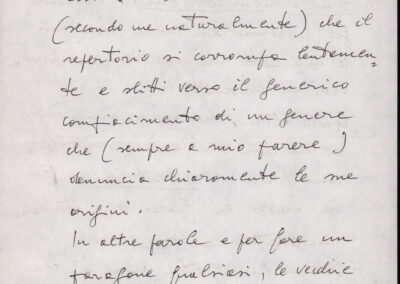 (secondo me naturalmente) che il
repertorio si corrompa lentamen=
te e slitti verso il generico
compiacimento di un genere
che (sempre a mio parere)
denuncia chiaramente le sue
origini.
In altre parole e per fare un
paragone qualsiasi, le vecchie